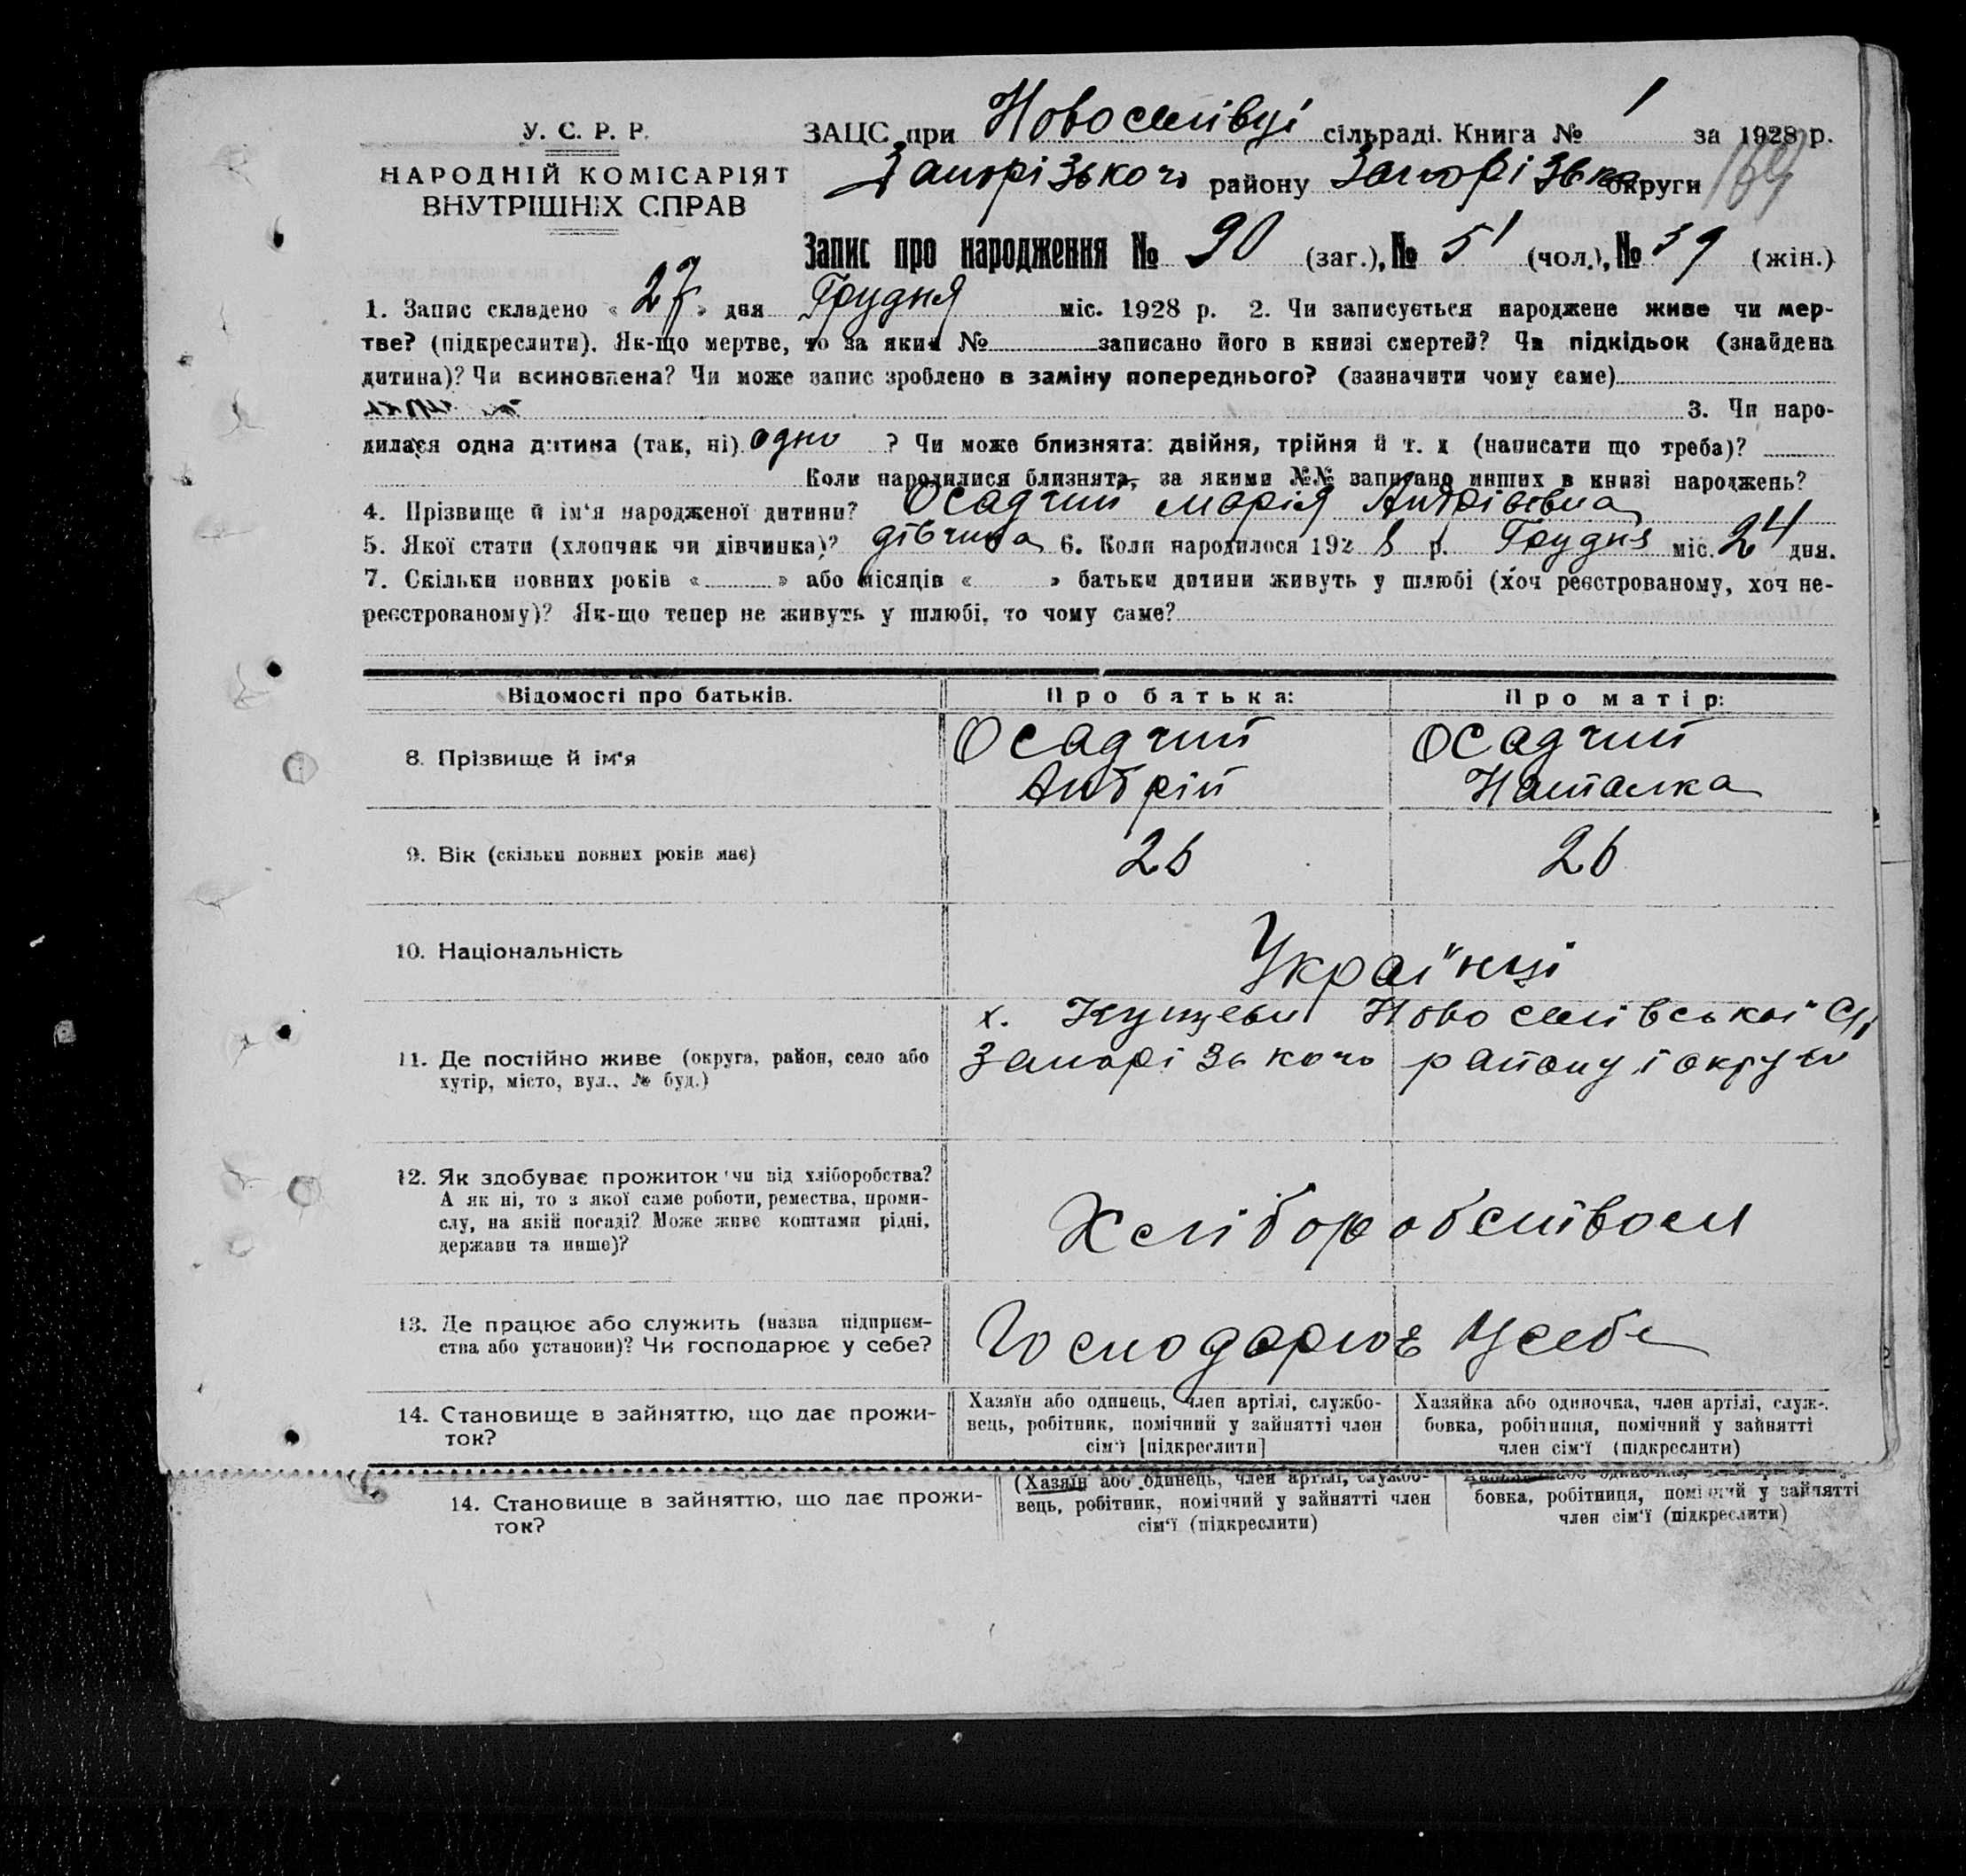 У. С. Р. Р.
НАРОДНІЙ КОМІСАРІЯТ
ВНУТРІШНІХ СПРАВ
ЗАЦС при Новоселівці сільраді. Книга № 1 за 1928 р.
Запорізького району Запорізька округи 169
Запис про народження № 90 (заг.), № 51 (чол.), № 39 (жін.)
1. Запис складено « 27 » дня Грудня міс. 1928 р. 2. Чи записується народжене живе чи мер-
тве? (підкреслити). Як-що мертве, то за яким № записано його в книзі смертей? Чи підкідьок (знайдена
дитина)? Чи всиновлена? Чи може запис зроблено в заміну попереднього? (зазначити чому саме)
3. Чи наро-
дилася одна дитина (так, ні) одно ? Чи може близнята: двійня, трійня й т. д (написати що треба)?
Коли народилися близнята, за якими №№ записано инших в книзі народжень?
4. Прізвище й ім'я народженої дитини? Осадчий Марія Андріівна
5. Якої стати (хлопчик чи дівчинка)? дівчина 6. Коли народилося 192 8 р. Грудня міс. 24 дня.
7. Скільки повних років « » або місяців « » батьки дитини живуть у шлюбі (хоч реєстрованому, хоч не-
реєстрованому)? Як-що тепер не живуть у шлюбі, то чому саме?
Відомості про батьків. Про батька: Про матір:
8. Прізвище й ім'я Осадчий Осадчий
Андрій Наталка
9. Вік (скільки повних років має) 26 26
10. Національність Українці
х. Новоселівської С/
11. Де постійно живе (округа, район, село або Запорізького району і округи
хутір, місто, вул., № буд.)
12. Як здобуває прожиток чи від хліборобства?
А як ні, то з якої саме роботи, ремества, проми-
слу, на якій посаді? Може живе коштами рідні, Хліборобством
держави та инше)?
13. Де працює або служить (назва підприєм- Господарює У себе
ства або установи)? Чи господарює у себе?
14. Становище в зайняттю, що дає прожи- Хазяїн або одинець, член артілі, службо- Хазяйка або одиночка, член артілі, служ-
ток? вець, робітник, помічний у зайнятті член бовка, робітниця, помічний у зайнятті
сім'ї [підкреслити] член сім'ї (підкреслити)
(Хазяїн або одинець, член артілі, службо-
14. Становище в зайняттю, що дає прожи- вець, робітник, помічний у зайнятті член бовка, робітниця, помічний у зайнятті
ток? сім'ї (підкреслити) член сім'ї (підкреслити)